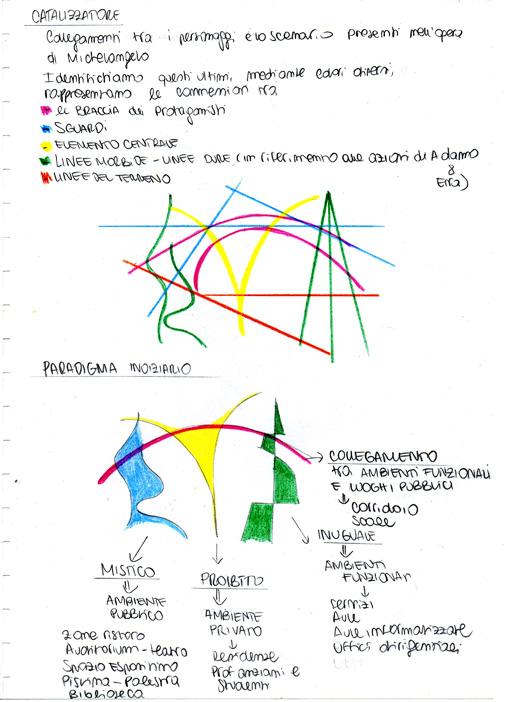 CATALIZZATORE
Collegamenti tra i personaggi e lo scenario presenti nell'opera
di Michelangelo
Identifichiamo questi ultimi, mediante colori diversi,
rappresentano le connessioni tra
le BRACCIA dei Protagonisti
SGUARDI
ELEMENTO CENTRALE
LINEE MORBIDE - LINEE DURE (in riferimento alle azioni di Adamo
&
Eva)
LINEE DEL TERRENO
PARADIGMA INDIZIARIO
COLLEGAMENTO
tra AMBIENTI FUNZIONALI
E LUOGHI PUBBLICI
corridoio
scale
INUGUALE
AMBIENTI
FUNZIONALI
servizi
Aule
Aule informatizzate
Uffici dirigenziali
MISTICO
AMBIENTE
PUBBLICO
zone ristoro
Auditorium - teatro
Spazio Espositivo
Piscina - Palestra
Biblioteca
PROIBITO
AMBIENTE
PRIVATO
Residenze
Prof anziani e
studenti